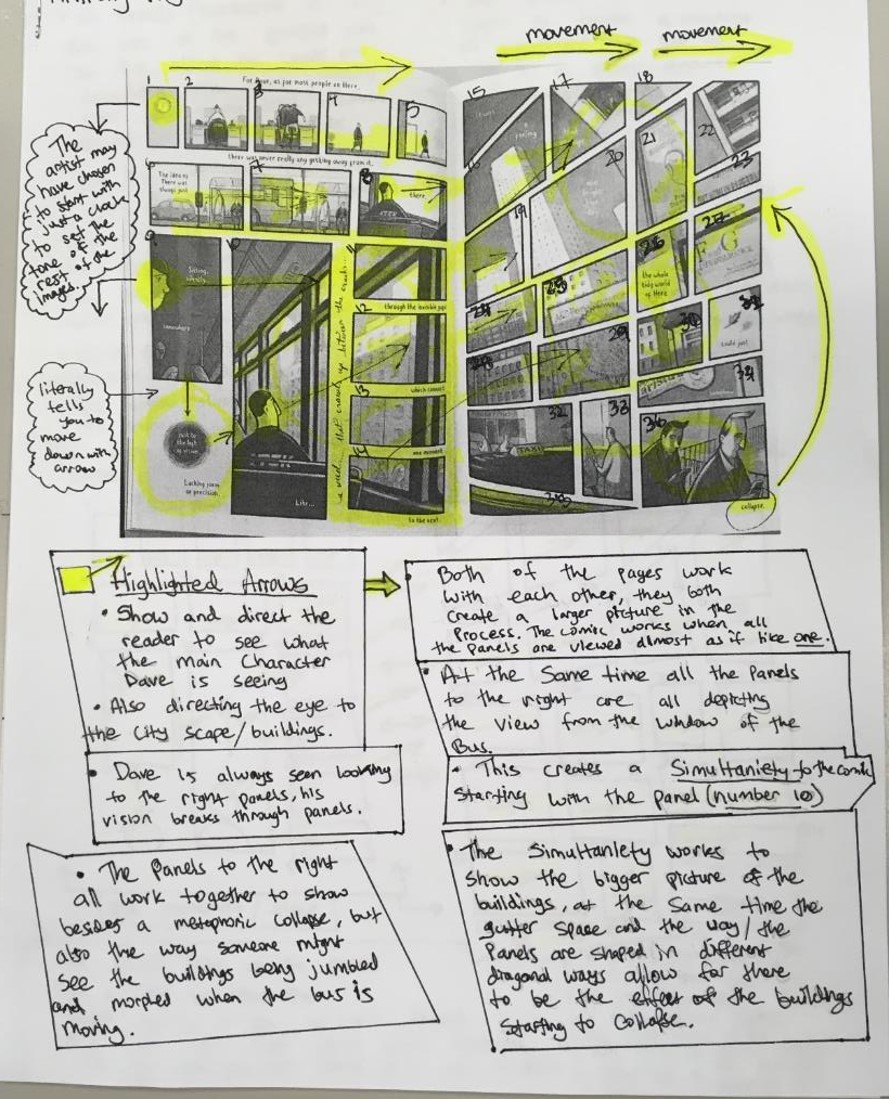 movement movement
1 2 3 4 5
For Dave, as for most people on Here,
there was never really any getting away from it.
6 7 8
The idea of
There was
always just...
there
9 10 11
Sitting,
idly
somewhere
just to
the left
of vision.
Lacking form
or precision.
Like...
a weed... that crawls up between the cracks...
12
through the invisible gaps
13
which connect
14
one moment
to the next.
15 17 18
16 20 21 22
19 23
a
feeling
24 25 26 27
the whole
tidy world
of Here
F G
28 29 30 31
could just
32 33 34
TAXI
36
collapse.
The
artist may
have chosen
to start with
just a clock
to set the
tone of the
rest of the
images.
literally
tells
you to
move
down with
arrow
Highlighted Arrows
• Show and direct the
reader to see what
the main Character
Dave is seeing
• Also directing the eye to
the City scape/buildings.
• Dave is always seen looking
to the right panels, his
vision breaks through panels.
• The Panels to the right
all work together to show
besides a metaphoric collapse, but
also the way someone might
see the buildings being jumbled
and morphed when the bus is
moving.
• Both of the pages work
with each other, they both
create a larger picture in the
Process. The comic works when all
the panels are viewed almost as if like one.
• At the Same time all the Panels
to the right are all depicting
the view from the window of the
Bus.
• This creates a Simultaniety to the comic
Starting with the panel (number 10)
• The Simultaniety works to
show the bigger picture of the
buildings, at the Same time the
gutter Space and the way/the
Panels are shaped in different
diagonal ways allow for there
to be the effect of the buildings
Starting to Collapse.